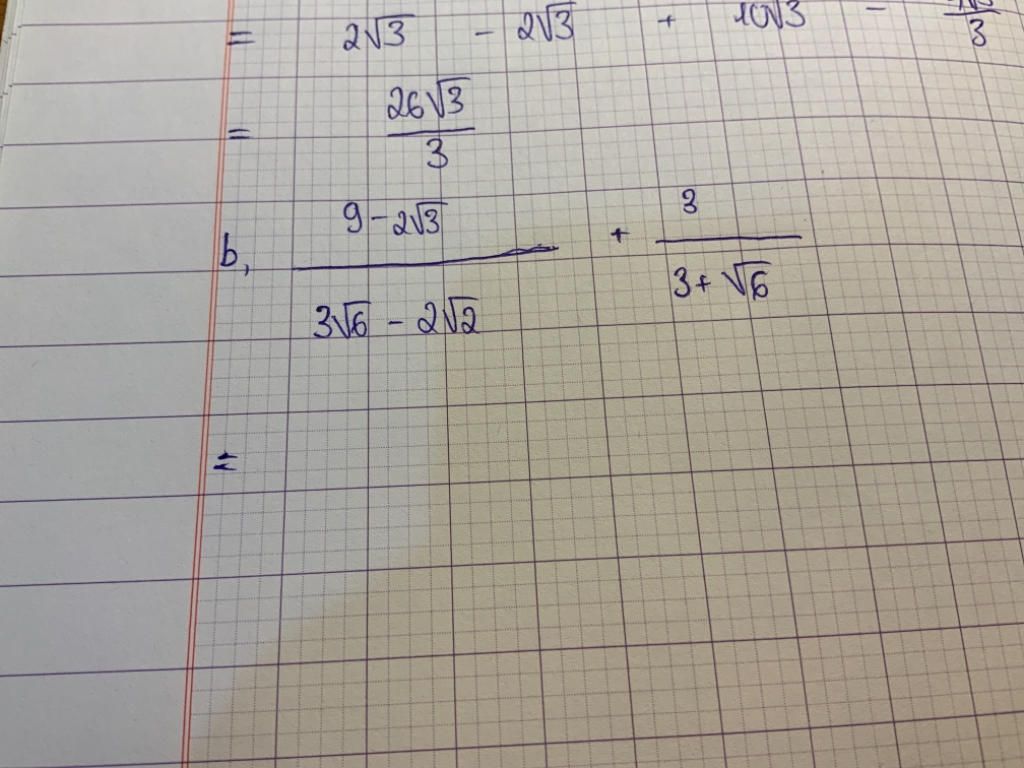 = 2√3 - 2√3 + 10√3 - /3
= 26√3/3
b, (9 - 2√3)/(3√6 - 2√2) + 3/(3 + √6)
=